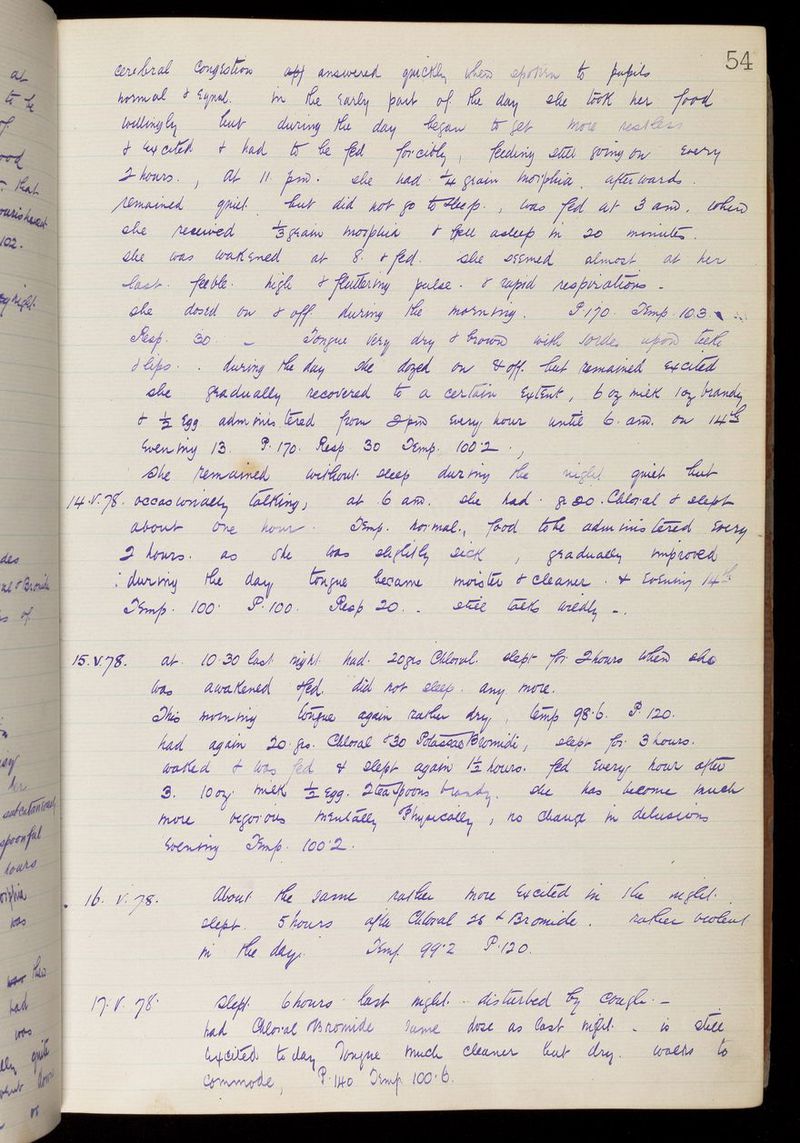 54
cerebral congestion app answered quickly when spoken to pupils
normal & equal. in the early part of the day she took her food
willingly but during the day began to get more restless
& excited & had to be fed forcibly, feeding still going on every
2 hours., at 11 pm. she had ¼ grain morphia afterwards.
remained quiet but did not go to sleep., was fed at 3 am. when
she received ⅓ grain morphia & fell asleep in 20 minutes.
she was wakened at 8. & fed. she seemed almost at her
last. feeble. high & fluttering pulse. & rapid respirations -
she dozed on & off during the morning. P 170. Temp. 103.
Resp. 30. - Tongue very dry & brown with sordes upon teeth
& lips. . during the day she dozed on & off. but remained excited
she gradually recovered to a certain extent, 6 oz milk 1 oz brandy
& ½ egg administered from 2 pm every hour until 6. am. on 14th
Evening 13. P. 170. Resp. 30 Temp. 100.2.,
she remained without sleep during the night quiet but
14.V.78. occasionally talking, at 6 am. she had. Chloral & slept
about one hour. Temp. normal., food to be administered every
2 hours. as she was slightly sick, gradually improved
during the day tongue became moister & cleaner. & Evening 14th
Temp. 100. P. 100. Resp 20. . still talks wildly -.
15.V.78. at 10.30 last night had. 20 grs Chloral. slept for 2 hours when she
was awakened & fed. did not sleep. any more.
This morning tongue again rather dry, temp 98.6. P. 120.
had again 20. grs. Chloral & 30 Potassae Bromide, slept for 3 hours.
waked & was fed & slept again 1½ hours. fed every hour after
3. 10 oz. milk ½ egg. 2 teaspoons brandy. she has become much
more vigorous mentally Physically, no change in delusions
Evening Temp. 100.2.
16. V. 78. About the same rather more excited in the night.
slept 5 hours after Chloral 25 & Bromide. rather violent
in the day. Temp. 99.2 P. 120.
17. V. 78. Slept. 6 hours last night. . disturbed by cough. -
had Chloral & Bromide same dose as last night. - is still
excited to day Tongue much cleaner but dry. walks to
commode, P. 140 Temp. 100.6.